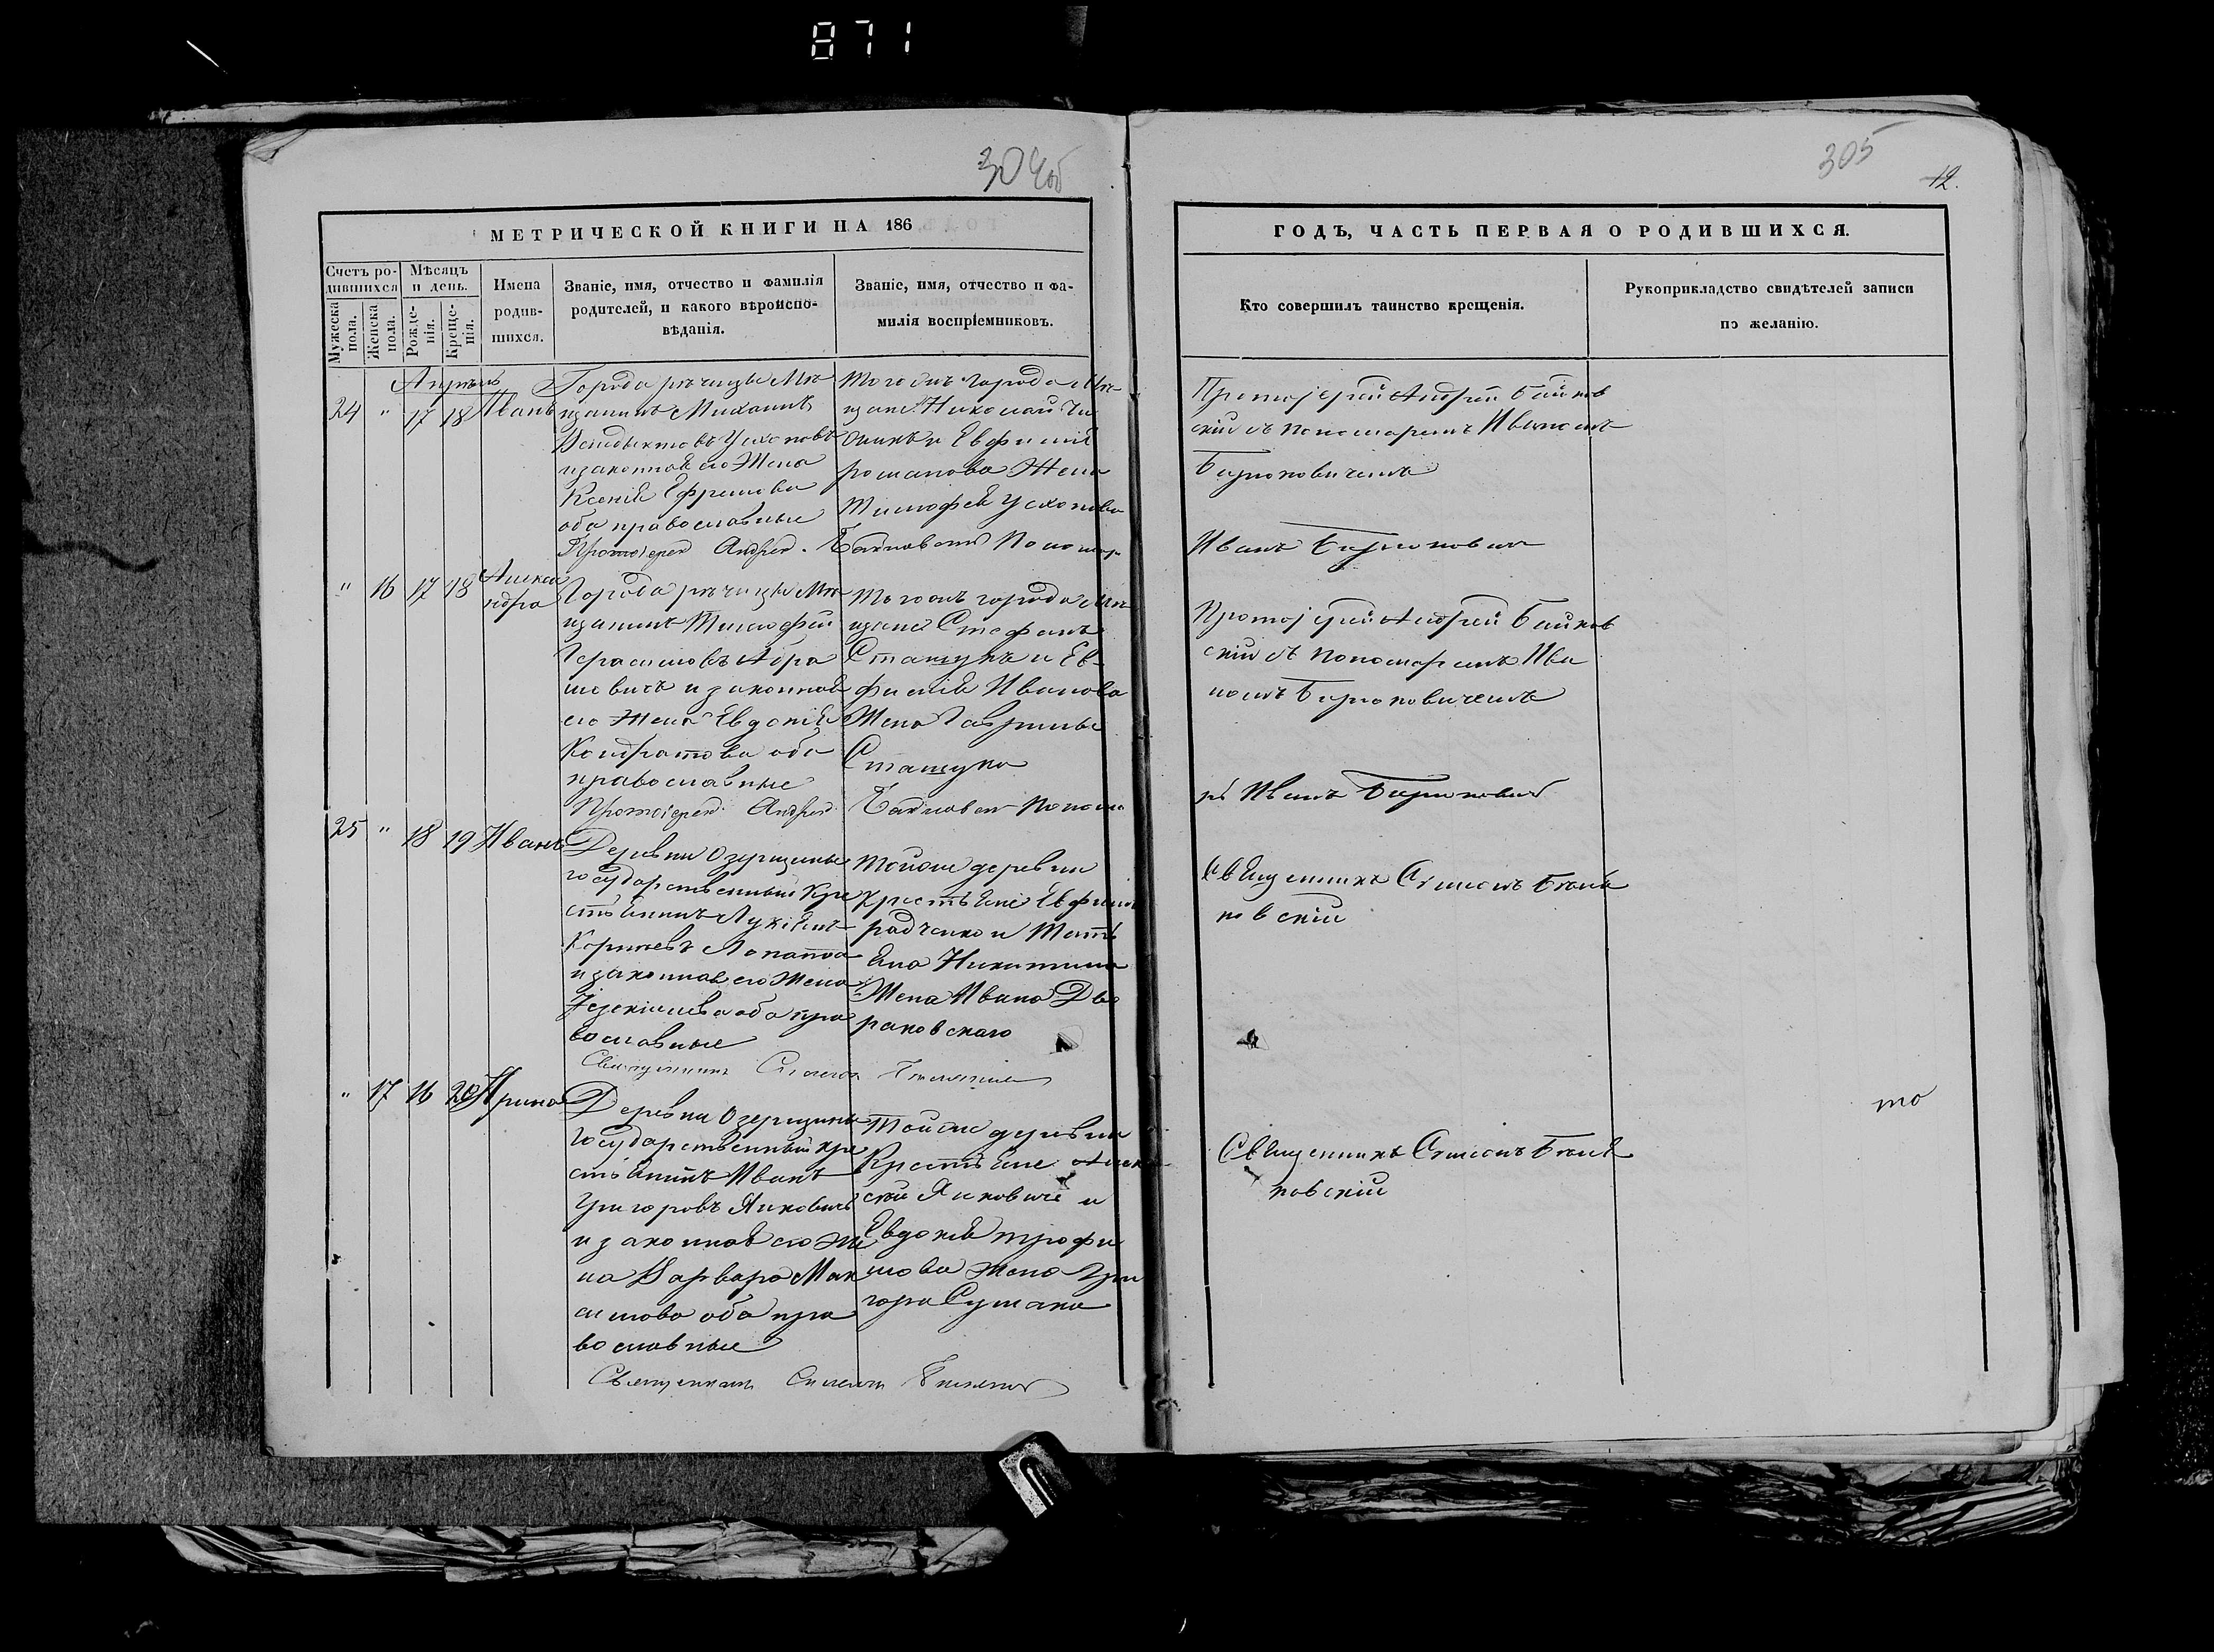 871
304об
305
12.
МЕТРИЧЕСКОЙ КНИГИ НА 186
ГОДЪ, ЧАСТЬ ПЕРВАЯ О РОДИВШИХСЯ.
Счетъ ро-
дившихся
Мужеска пола.
Женска пола.
Мѣсяцъ
и день.
Рожде-
нія.
Креще-
нія.
Имена
родив-
шихся.
Званіе, имя, отчество и фамилія
родителей, и какого вѣроиспо-
вѣданія.
Званіе, имя, отчество и фа-
милія воспріемниковъ.
Кто совершилъ таинство крещенія.
Рукоприкладство свидѣтелей записи
по желанію.
Апрѣль
24 " 17 18 Иванъ
Города рѣчицы Мѣ
щанинъ Михаилъ
Венедыктовъ
и законная его Жена
Ксенія Ефремова
оба православные
Протоіерей Андрей
Тогожъ города Мѣ
щане Николай
и Евфимія
романова Жена
Тимофея
Протоіерей Андрей
скій съ пономаремъ Иваномъ
Иванъ
" 16 17 18 Алекса
ндра
Города рѣчицы Мѣ
щанинъ Тимофей
Герасимовъ Абра
мовичъ и законная
его Жена Евдокія
Кондратова оба
православные
Протоіерей Андрей
Тогожъ города Мѣ
щане Стефанъ
Сташукъ и Ев-
фимія Иванова
Жена Гаврилы
Сташука
Протоіерей Андрей
скій съ пономаремъ Ива
номъ
ръ Иванъ
25 " 18 19 Иванъ
Деревни Озерщины
государственный Кре
стьянинъ Лукіянъ
Корнѣевъ Лопатка
и законная его Жена
оба пра
вославные
Священникъ Симеонъ
Тойже деревни
Крестьяне Евфимъ
радченко и Тать
яна Никитина
Жена Ивана Дво
раковскаго
Священникъ Симеонъ
новскій
" 17 16 20 Ирина
Деревни Озерщины
Государственный кре
стьянинъ Иванъ
Григоровъ Янковичъ
и законная его Же
на Варвара Мак
симова оба пра
вославные
Священникъ Симеонъ
Тойже деревни
Крестьяне Алек
сѣй Янковичъ и
Евдокія трофи
мова Жена Гри
гора
Священникъ Симеонъ
новскій
то